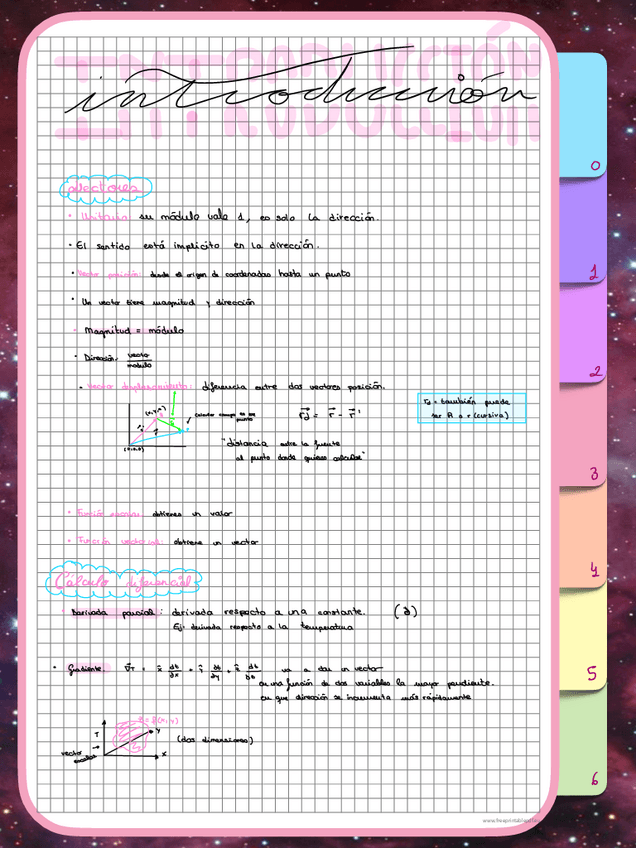 INTRODUCCIÓN
introducción
Vectores
· Unitario: su módulo vale 1, es solo la dirección.
· El sentido está implícito en la dirección.
· Vector posición: desde el origen de coordenadas hasta un punto
· Un vector tiene magnitud y dirección
- Magnitud = módulo
· Dirección: vector
módulo
· Vector desplazamiento: diferencia entre dos vectores posición.
(x,y,z)
(0,0,0)
calcular campo en ese
punto
r⃗ - r⃗'
también puede
ser R o r (cursiva)
"distancia entre la fuente
al punto donde quieres calcular"
· Función escalar: obtienes un valor
· Función vectorial: obtiene un vector
Cálculo diferencial
· Derivada parcial: derivada respecto a una constante. (∂)
Ej: derivada respecto a la temperatura
· Gradiente: va a dar un vector
en una función de dos variables la mayor pendiente.
en que dirección se incrementa más rápidamente
T
y
x
vector
(dos dimensiones)
0
1
2
3
4
5
6